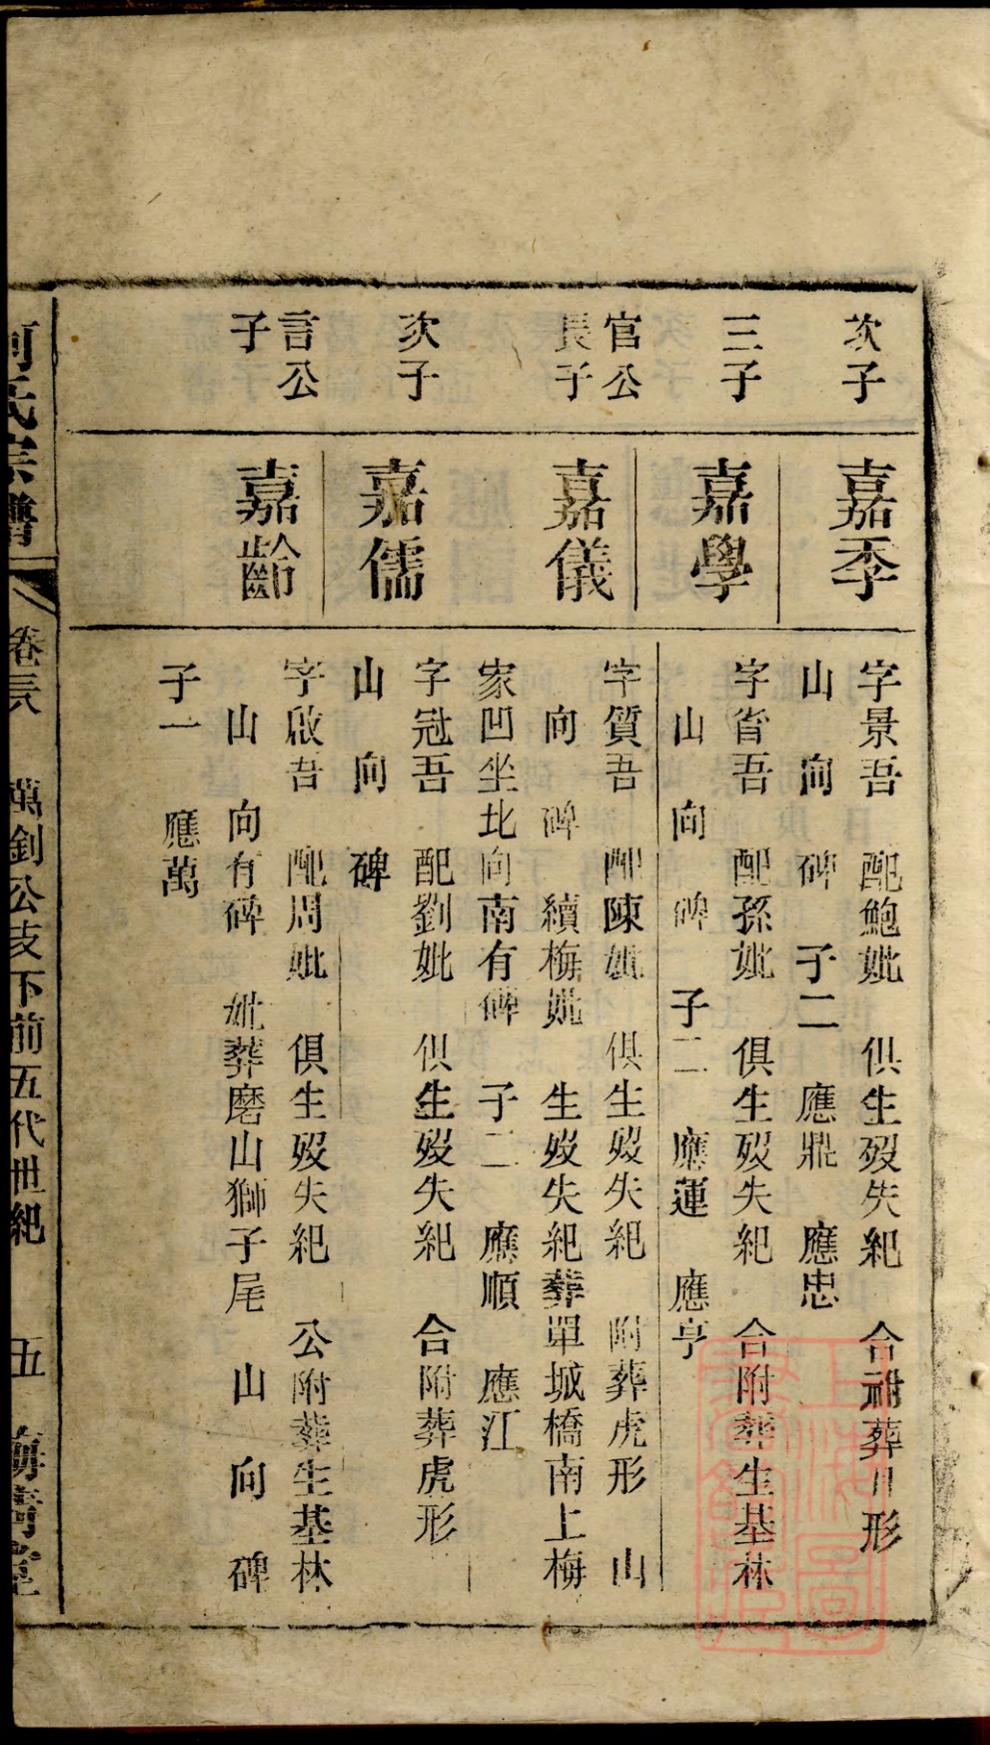 次子
嘉季
字景吾　配鮑妣　俱生歿失紀　合祔葬川形
山　向　碑　子二　應鼎　應忠
三子
嘉學
字省吾　配孫妣　俱生歿失紀　合附葬生基林
山　向　碑　子二　應運　應亨
官公
長子
嘉儀
字質吾　配陳妣　俱生歿失紀　附葬虎形　山
向　碑　續梅妣　生歿失紀葬單城橋南上梅
家凹坐北向南有碑　子二　應順　應江
次子
嘉儒
字冠吾　配劉妣　俱生歿失紀　合附葬虎形
山　向　碑
言公
子
嘉齡
字啟吾　配周妣　俱生歿失紀　公附葬生基林
山　向有碑　妣葬磨山獅子尾　山　向　碑
子一　應萬
何氏宗譜
卷三	萬釗公支下前五代世紀　五
上海圖書館藏